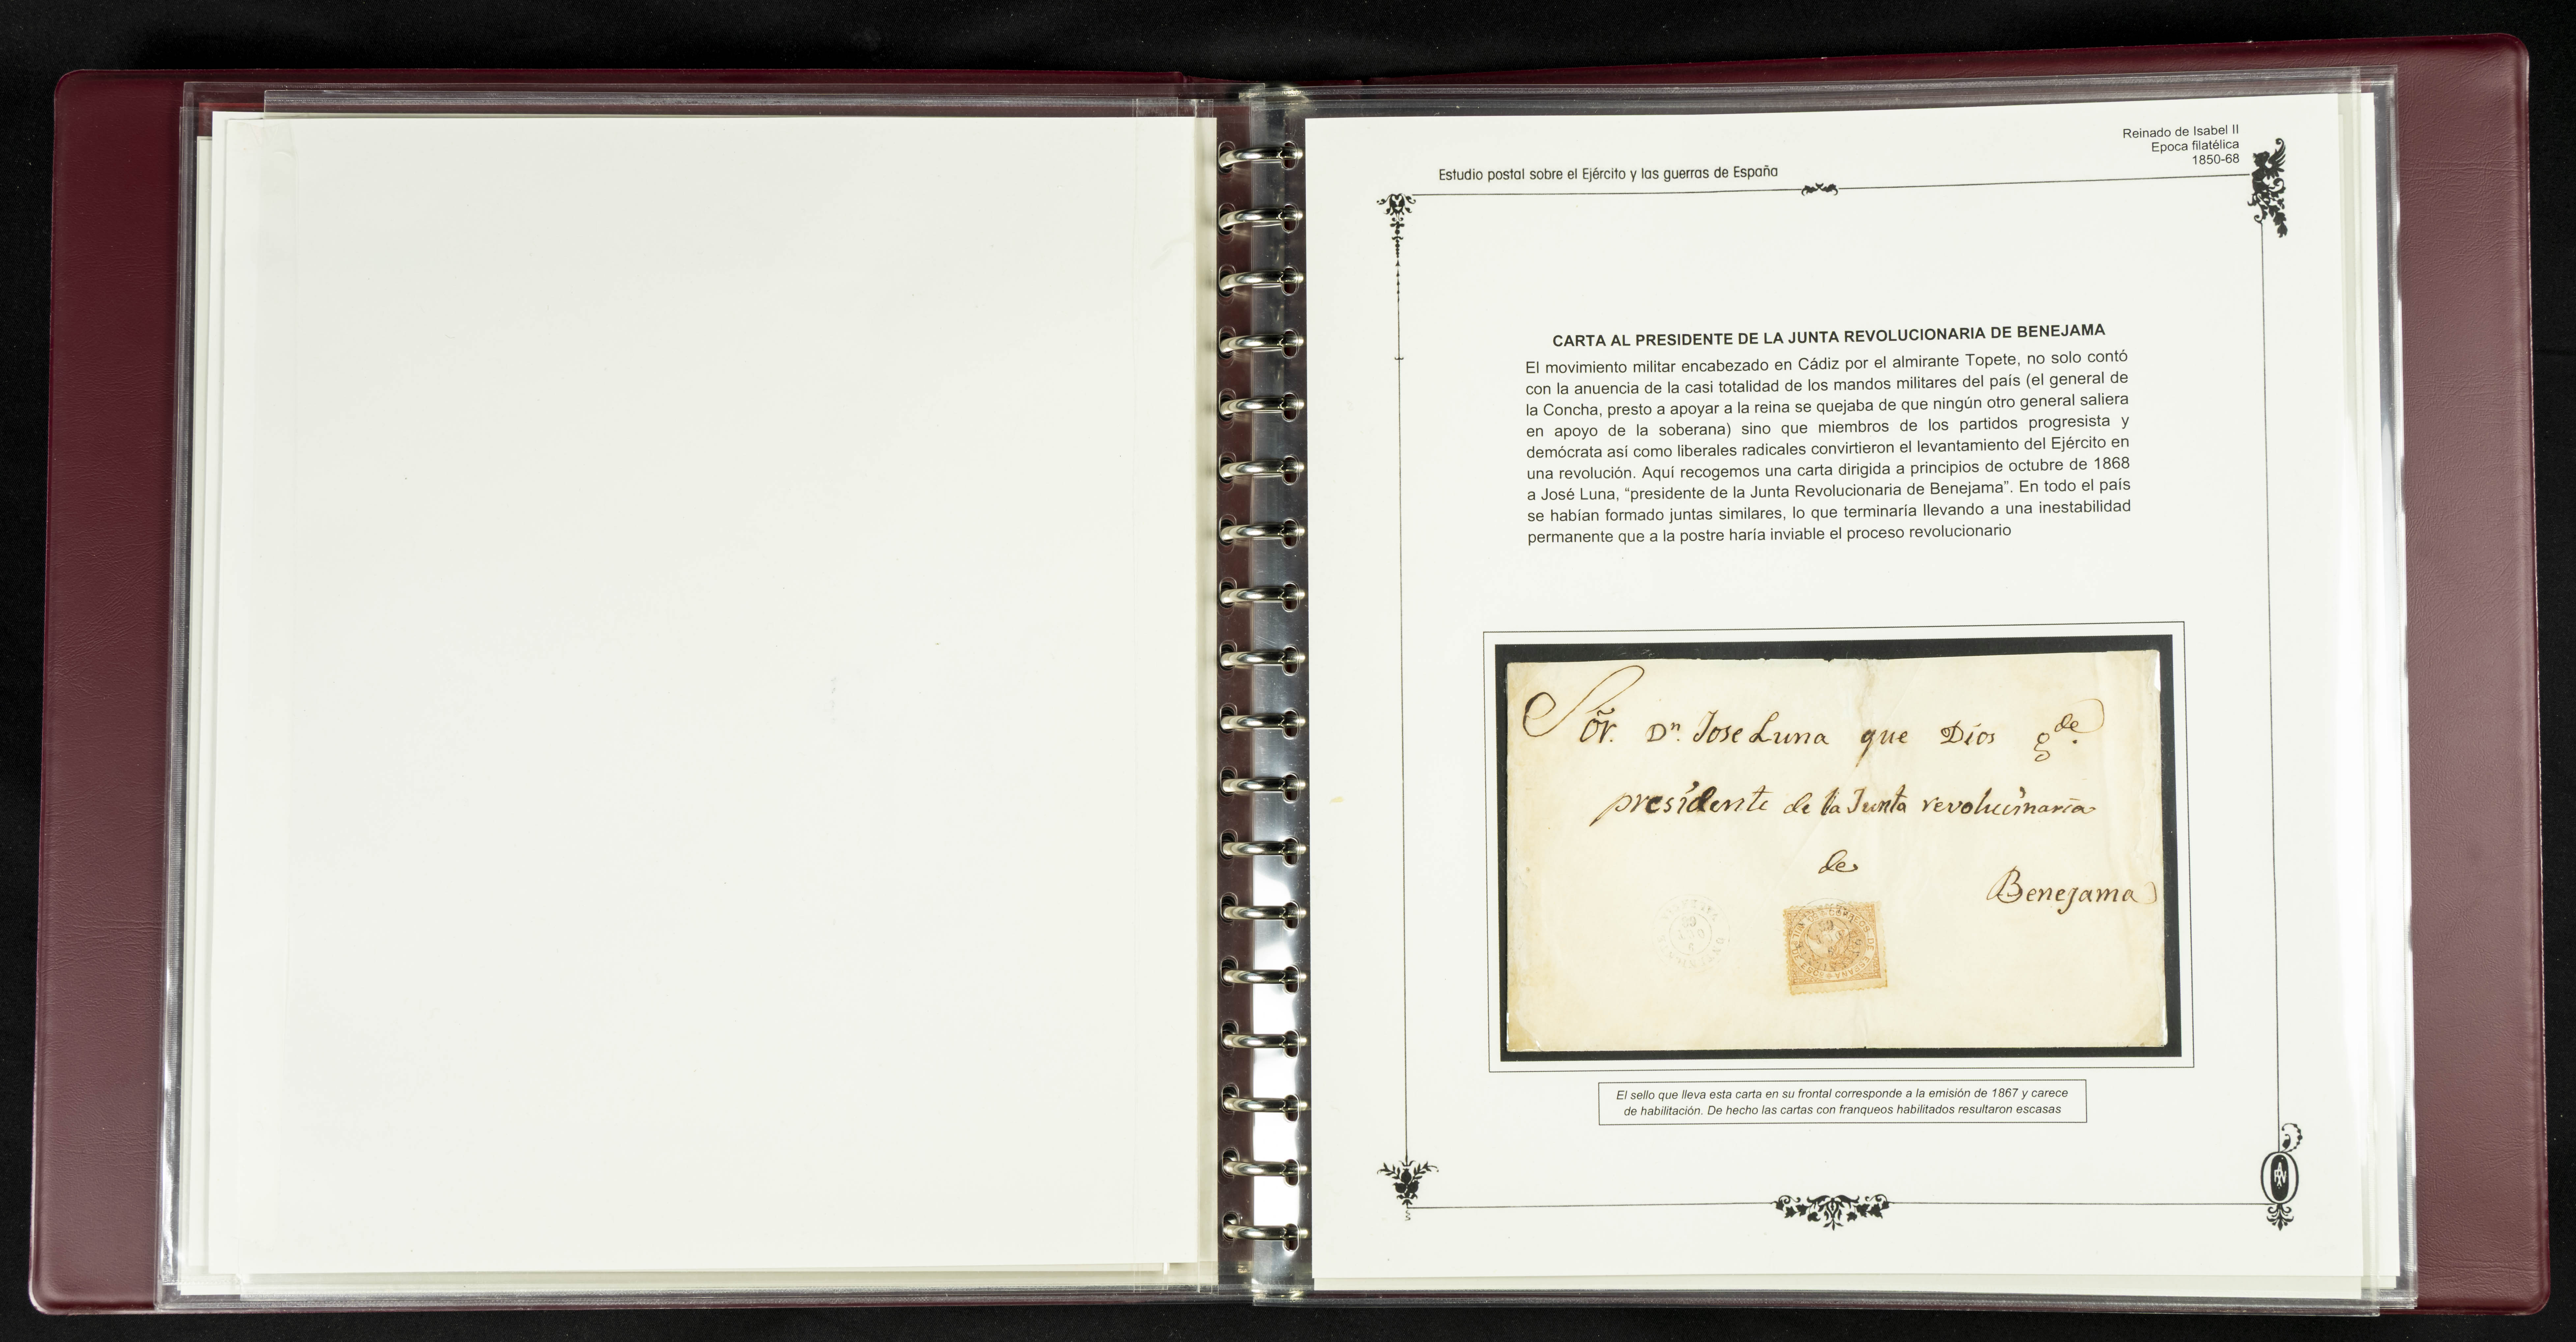 Reinado de Isabel II
Epoca filatélica
1850-68
Estudio postal sobre el Ejército y las guerras de España
CARTA AL PRESIDENTE DE LA JUNTA REVOLUCIONARIA DE BENEJAMA
El movimiento militar encabezado en Cádiz por el almirante Topete, no solo contó
con la anuencia de la casi totalidad de los mandos militares del país (el general de
la Concha, presto a apoyar a la reina se quejaba de que ningún otro general saliera
en apoyo de la soberana) sino que miembros de los partidos progresista y
demócrata así como liberales radicales convirtieron el levantamiento del Ejército en
una revolución. Aquí recogemos una carta dirigida a principios de octubre de 1868
a José Luna, “presidente de la Junta Revolucionaria de Benejama”. En todo el país
se habían formado juntas similares, lo que terminaría llevando a una inestabilidad
permanente que a la postre haría inviable el proceso revolucionario
Sõr. Dn. Jose Luna que Dios gde.
presidente de la Junta revolucinaria
de
Benejama
CORREOS DE ESPAÑA
El sello que lleva esta carta en su frontal corresponde a la emisión de 1867 y carece
de habilitación. De hecho las cartas con franqueos habilitados resultaron escasas